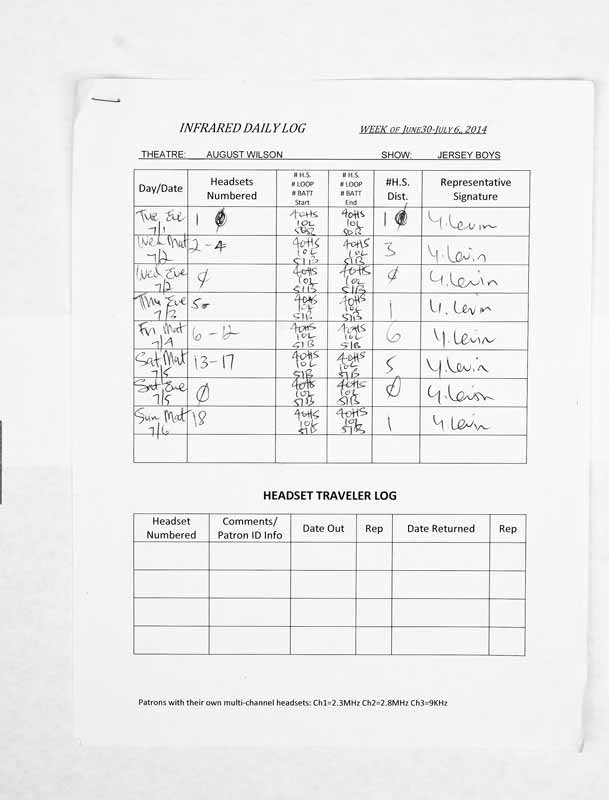 INFRARED DAILY LOG WEEK OF JUNE30-JULY 6., 2014
THEATRE: AUGUST WILSON SHOW: JERSEY BOYS
Day/Date Headsets Numbered # H.S. # LOOP # BATT Start # H.S. # LOOP # BATT End #H.S. Dist. Representative Signature
Tue Eve 7/1 1 40HS 10L 40HS 10L 1 Y. Levin
Wed Mat 7/2 2-4 40HS 10L 51B 40HS 10L 51B 3 Y. Levin
Wed Eve 7/2 Ø 40HS 10L 51B 40HS 10L 51B Ø Y. Levin
Thu Eve 7/3 5 40HS 10L 51B 40HS 10L 51B 1 Y. Levin
Fri Mat 7/4 6-12 40HS 10L 51B 40HS 10L 51B 6 Y. Levin
Sat Mat 7/5 13-17 40HS 10L 51B 40HS 10L 51B 5 Y. Levin
Sat Eve 7/5 Ø 40HS 10L 51B 40HS 10L 51B Ø Y. Levin
Sun Mat 7/6 18 40HS 10L 51B 40HS 10L 51B 1 Y Levin
HEADSET TRAVELER LOG
Headset Numbered Comments/ Patron ID Info Date Out Rep Date Returned Rep
Patrons with their own multi-channel headsets: Ch1=2.3MHz Ch2=2.8MHz Ch3=9KHz